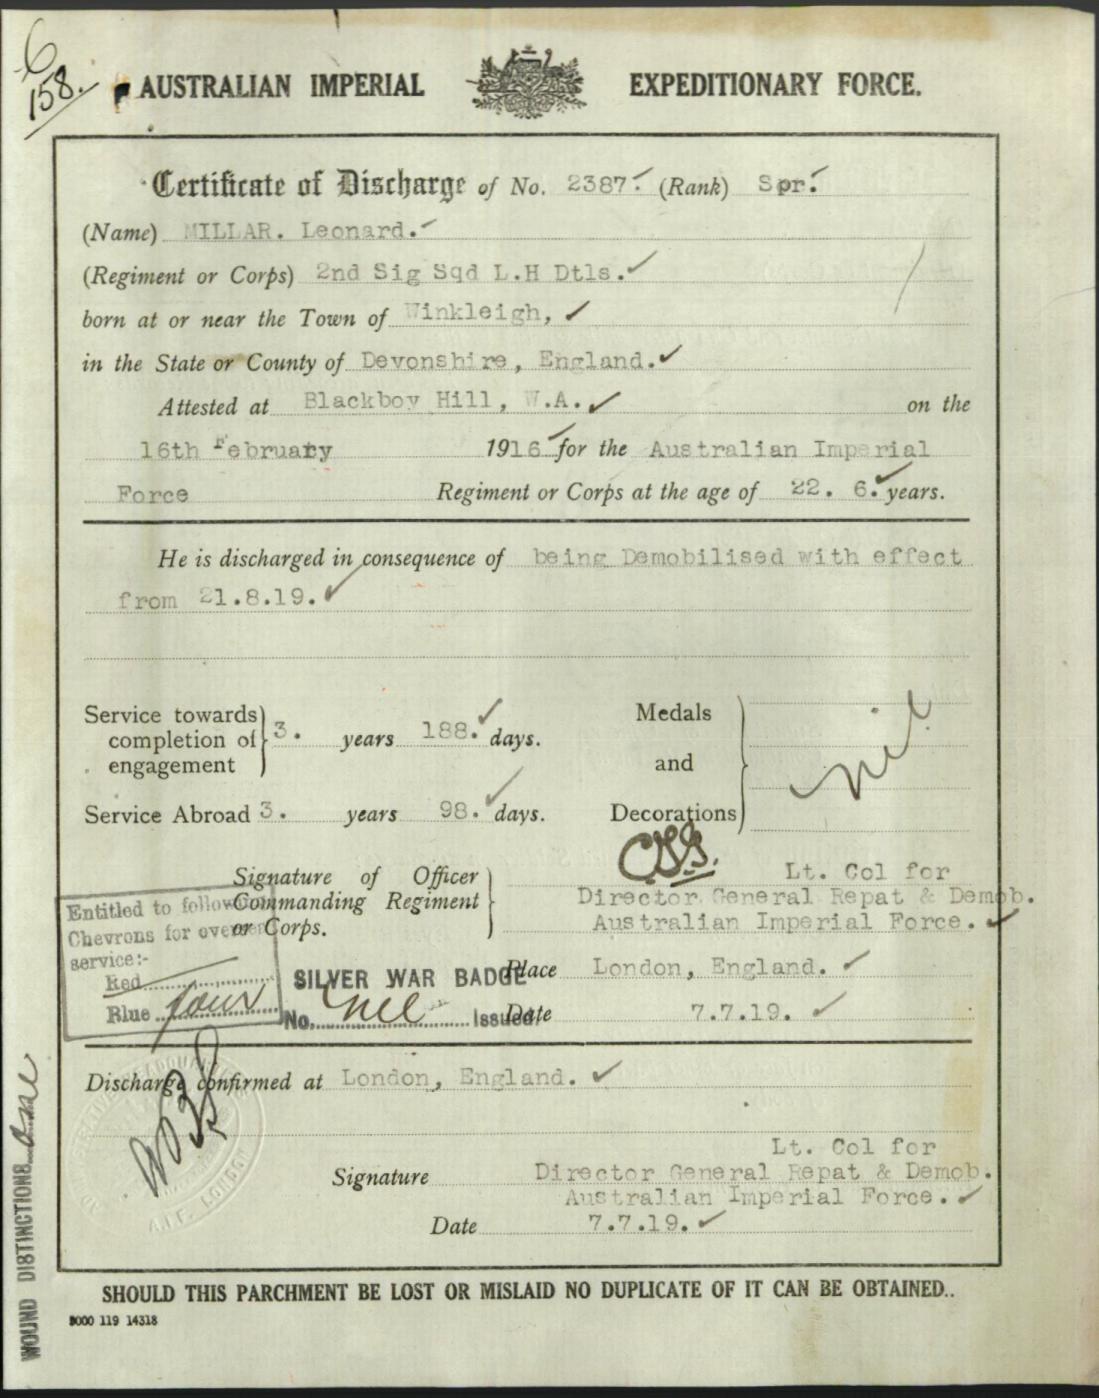 6
158.
AUSTRALIAN IMPERIAL EXPEDITIONARY FORCE.
Certificate of Discharge of No. 2387. (Rank) Spr.
(Name) MILLAR. Leonard.
(Regiment or Corps) 2nd Sig Sqd L.H Dtls.
born at or near the Town of Winkleigh,
in the State or County of Devonshire, England.
Attested at Blackboy Hill, W.A. on the
16th February 1916 for the Australian Imperial
Force Regiment or Corps at the age of 22. 6. years.
He is discharged in consequence of being Demobilised with effect
from 21.8.19.
Service towards completion of engagement 3. years 188. days.
Medals and Decorations nil
Service Abroad 3. years 98. days.
Signature of Officer Commanding Regiment or Corps.
Lt. Col for
Director General Repat & Demob.
Australian Imperial Force.
Entitled to follow
Chevrons for overseas
service:-
Red
Blue four
SILVER WAR BADGE
No. nil Issued.
Place London, England.
Date 7.7.19.
Discharge confirmed at London, England.
Lt. Col for
Signature Director General Repat & Demob.
Australian Imperial Force.
Date 7.7.19.
A.I.F. LONDON
WOUND DISTINCTIONS one
SHOULD THIS PARCHMENT BE LOST OR MISLAID NO DUPLICATE OF IT CAN BE OBTAINED..
5000 119 14318